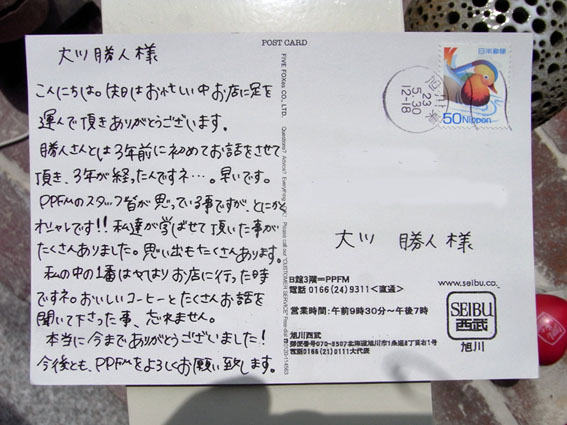 POST CARD
大川 勝人 様
こんにちは。休日はお忙しい中お店に足を
運んで頂きありがとうございます。
勝人さんとは3年前に初めてお話をさせて
頂き、3年が経ったんですネ…。早いです。
PPFMのスタッフ皆が思っている事ですが、とにかく
オシャレです!!私達が学ばせて頂いた事が
たくさんありました。思い出もたくさんあります。
私の中の1番はやはりお店に行った時
ですネ。おいしいコーヒーとたくさんお話を
聞いて下さった事、忘れません。
本当に今までありがとうございました!
今後とも、PPFMをよろしくお願い致します。
FIVE FOXes CO., LTD.
Questions? Advice? Everything O.K.? Please call our "CUSTOMER SERVICE" Free-dial
日本郵便
50 Nippon
旭川東
23
5.30
12-18
大川 勝人 様
B館3階=PPFM
電話 0166(24)9311<直通>
営業時間:午前9時30分〜午後7時
旭川西武
郵便番号070-8507北海道旭川市1条通8丁目右1号
電話0166(21)0111大代表
www.seibu.co.
SEIBU
西武
旭川